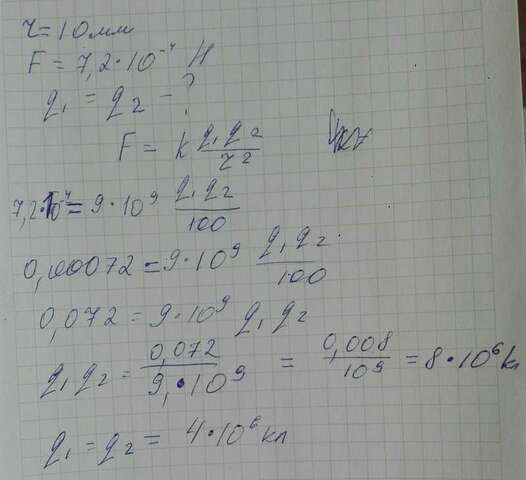 r = 10 мм
F = 7,2 · 10⁻⁴ Н
q₁ = q₂ - ?
F = k q₁q₂ / r²
7,2·10⁻⁴ = 9·10⁹ q₁q₂ / 100
0,00072 = 9·10⁹ q₁q₂ / 100
0,072 = 9·10⁹ q₁q₂
q₁q₂ = 0,072 / 9·10⁹ = 0,008 / 10⁹ = 8·10⁶ кл
q₁ = q₂ = 4·10⁶ кл